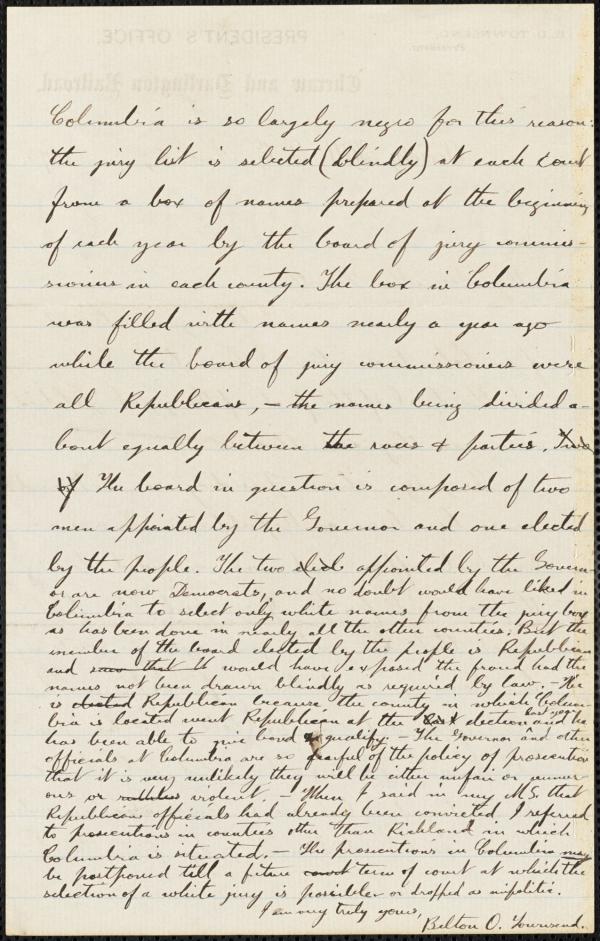 Columbia is so largely negro for this reason:
the jury list is selected (blindly) at each court
from a box of names prepared at the beginning
of each year by the board of jury commis-
sioners in each county. The box in Columbia
was filled with names nearly a year ago
while the board of jury commissioners were
all Republicans, – the names being divided a-
bout equally between the races & parties. Two
of The board in question is composed of two
men appointed by the Governor and one elected
by the people. The two appointed by the Govern-
or are now Democrats, and no doubt would have liked in
Columbia to select only white names from the jury box
as has been done in nearly all the other counties. But the
member of the board elected by the people is Republican
and saw that it would have exposed the fraud had the
names not been drawn blindly as required by law. – He
is elected Republican because the county in which Colum-
bia is located went Republican at the last election last year and he
has been able to give bond & qualify. – The Governor and other
officials at Columbia are so fearful of the policy of prosecution
that it is very unlikely they will be either unfair or numer-
ous or violent. – When I said in my MS. that
Republican officials had already been convicted I referred
to prosecutions in counties other than Richland in which
Columbia is situated. – The prosecutions in Columbia may
be postponed till a future court term of court at which the
selection of a white jury is possible or dropped as impolitic.
I am very truly yours,
Belton O. Townsend.